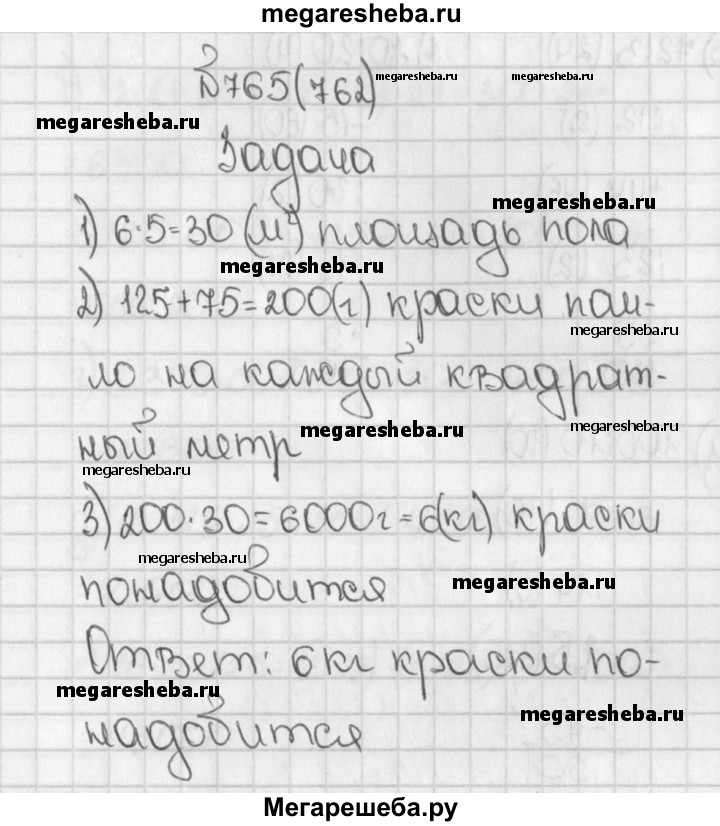 megaresheba.ru
№765(762) megaresheba.ru megaresheba.ru
megaresheba.ru
Задача
megaresheba.ru
1) 6·5=30 (м²) площадь пола
megaresheba.ru
2) 125+75=200(г) краски пош-
megaresheba.ru
ло на каждый квадрат-
megaresheba.ru megaresheba.ru
ный метр
megaresheba.ru
3) 200·30=6000г=6(кг) краски
megaresheba.ru
понадобится megaresheba.ru
Ответ: 6кг краски по-
megaresheba.ru
надобится megaresheba.ru
Мегарешеба.ру